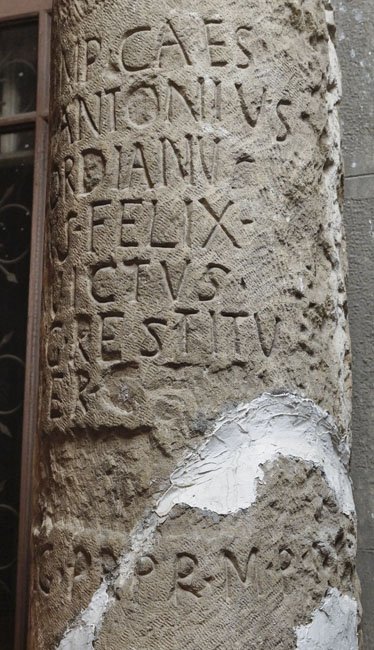 MP·CAES
ANTONIVS
ORDIANV
S·FELIX·
ICTVS·
G RESTITV
ER
G·PR·PR·M·P